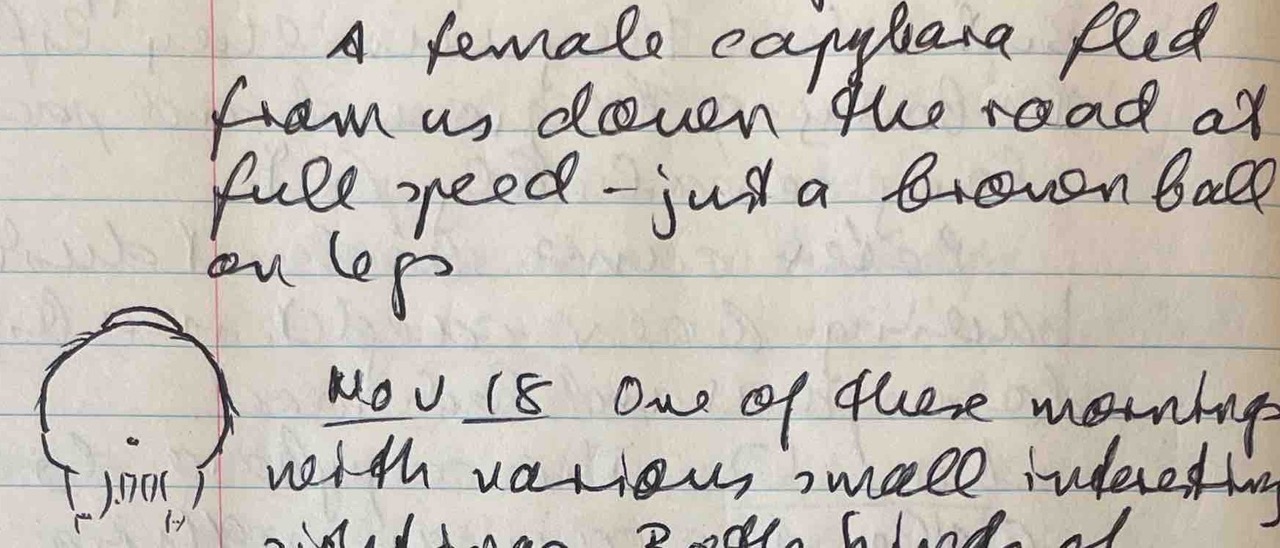 A female capybara fled
from us down the road at
full speed - just a brown ball
on legs
Nov 18 One of these mornings
with various small interesting
sightings. Both kinds of